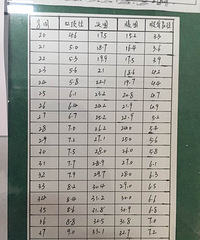 20 4.6 17.5 15.2 3.3
21 5.0 18.7 16.4 3.6
22 5.3 19.9 17.5 3.9
23 5.4 21 18.6 4.2
24 5.8 22.1 19.7 4.4
25 6.1 23.2 20.8 4.7
26 6.4 24.2 21.9 4.9
27 6.7 25.2 22.9 5.2
28 7.0 26.2 24.0 5.4
29 7.2 27.1 25.0 5.6
30 7.5 28.0 26.0 5.8
31 7.7 28.9 27.0 6.1
32 7.9 29.7 28.0 6.3
33 8.2 30.4 29.0 6.5
34 8.4 31.2 30.0 6.6
35 8.6 31.8 30.9 6.8
36 8.8 32.5 31.8 7.0
37 9.0 33.1 32.7 7.2